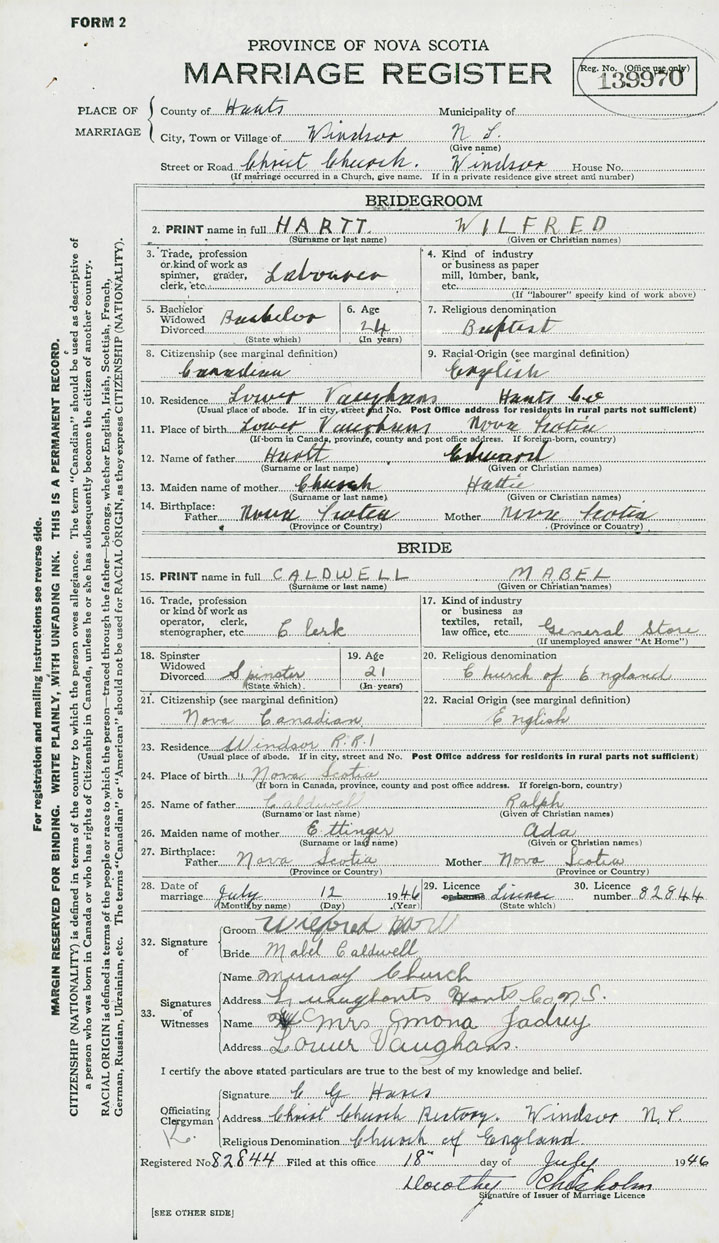 FORM 2
PROVINCE OF NOVA SCOTIA
MARRIAGE REGISTER
Reg. No. (Office use only)
139970
PLACE OF MARRIAGE
County of Hants Municipality of
City, Town or Village of Windsor N. S.
(Give name)
Street or Road Christ Church. Windsor House No.
(If marriage occurred in a Church, give name. If in a private residence give street and number)
BRIDEGROOM
2. PRINT name in full HARTT WILFRED
(Surname or last name) (Given or Christian names)
3. Trade, profession or kind of work as spinner, grader, clerk, etc. Labourer
4. Kind of industry or business as paper mill, lumber, bank, etc.
(If "labourer" specify kind of work above)
5. Bachelor Widowed Divorced Bachelor
(State which)
6. Age 24
(In years)
7. Religious denomination
Baptist
8. Citizenship (see marginal definition)
Canadian
9. Racial Origin (see marginal definition)
English
10. Residence Lower Vaughans Hants Co
(Usual place of abode. If in city, street and No. Post Office address for residents in rural parts not sufficient)
11. Place of birth Lower Vaughans Nova Scotia
(If born in Canada, province, county and post office address. If foreign-born, country)
12. Name of father Hartt Edward
(Surname or last name) (Given or Christian names)
13. Maiden name of mother Church Hattie
(Surname or last name) (Given or Christian names)
14. Birthplace: Father Nova Scotia Mother Nova Scotia
(Province or Country) (Province or Country)
BRIDE
15. PRINT name in full CALDWELL MABEL
(Surname or last name) (Given or Christian names)
16. Trade, profession or kind of work as operator, clerk, stenographer, etc Clerk
17. Kind of industry or business as textiles, retail, law office, etc. General Store
(If unemployed answer "At Home")
18. Spinster Widowed Divorced Spinster
(State which)
19. Age 21
(In years)
20. Religious denomination
Church of England
21. Citizenship (see marginal definition)
Nova Canadian
22. Racial Origin (see marginal definition)
English
23. Residence Windsor R.R.1
(Usual place of abode. If in city, street and No. Post Office address for residents in rural parts not sufficient)
24. Place of birth " Nova Scotia
(If born in Canada, province, county and post office address. If foreign-born, country)
25. Name of father Caldwell Ralph
(Surname or last name) (Given or Christian names)
26. Maiden name of mother Ettinger Ada
(Surname or last name) (Given or Christian names)
27. Birthplace: Father Nova Scotia Mother Nova Scotia
(Province or Country) (Province or Country)
28. Date of marriage July 12 1946
(Month by name) (Day) (Year)
29. Licence or banns License
(State which)
30. Licence number 82844
32. Signature of
Groom Wilfred Hartt
Bride Mabel Caldwell
33. Signatures of Witnesses
Name Murray Church
Address Hants Co N.S.
Name Mrs
Address Lower Vaughans.
I certify the above stated particulars are true to the best of my knowledge and belief.
Officiating Clergyman
Signature C G
Address Christ Church Rectory. Windsor N.S.
Religious Denomination Church of England
Registered No 82844 Filed at this office 18" day of July 1946
Dorothy Chisholm
Signature of Issuer of Marriage Licence
[SEE OTHER SIDE]
For registration and mailing instructions see reverse side.
MARGIN RESERVED FOR BINDING. WRITE PLAINLY, WITH UNFADING INK. THIS IS A PERMANENT RECORD.
CITIZENSHIP (NATIONALITY) is defined in terms of the country to which the person owes allegiance. The term "Canadian" should be used as descriptive of
a person who was born in Canada or who has rights of Citizenship in Canada, unless he or she has subsequently become the citizen of another country.
RACIAL ORIGIN is defined in terms of the people or race to which the person—traced through the father—belongs, whether English, Irish, Scottish, French,
German, Russian, Ukrainian, etc. The terms "Canadian" or "American" should not be used for RACIAL ORIGIN, as they express CITIZENSHIP (NATIONALITY).